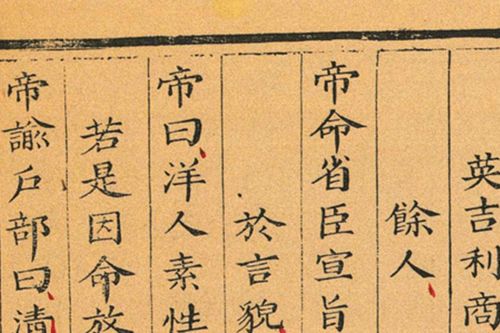 英吉利商
餘人
帝命省臣宣旨
於言貌
帝曰洋人素性
若是因命放
帝諭戶部曰清